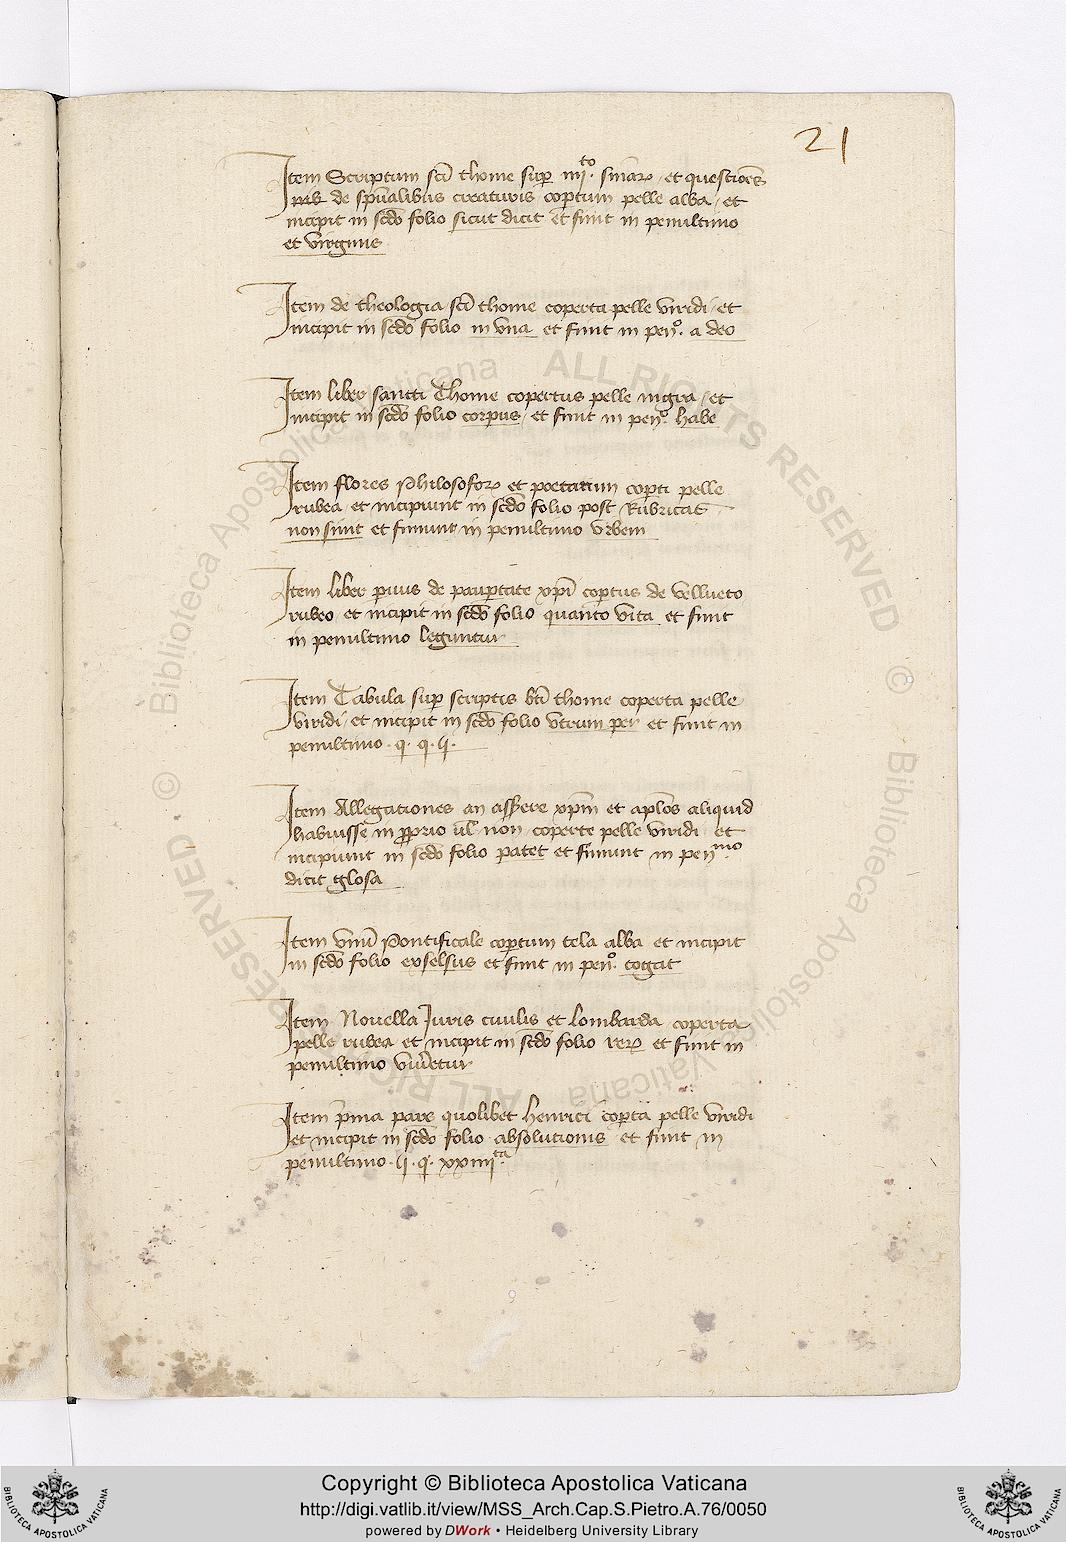 21
Item Scriptum sci thome sup iiii.to sniar. et questiones
de spualibus creaturis coptum pelle alba et
incipit in scdo folio sicut dicit et finit in penultimo
et virginis
Item de theologia sci thome coperta pelle viridi et
incipit in scdo folio in vna et finit in pen.o a deo
Item liber sancti Thome copertus pelle nigra et
incipit in scdo folio corpus et finit in pen.o habe
Item flores Philosofor. et poetarum copti pelle
rubea et incipiunt in scdo folio post Rubricas
non sunt et finiunt in penultimo vrbem
Item liber puus de pauptate xpi coptus de vellueto
rubeo et incipit in scdo folio quanto vita et finit
in penultimo leguntur
Item Tabula sup scriptis bti thome coperta pelle
viridi et incipit in scdo folio vtrum per et finit in
penultimo . q. q. ii.
Item Allegationes an asserere xpm et aplos aliquid
habuisse in pprio ul non coperte pelle viridi et
incipiunt in scdo folio patet et finiunt in pen.mo
dicit glosa
Item vnu Pontificale coptum tela alba et incipit
in scdo folio exselsus et finit in pen.o cogat
Item Nouella Juris ciuilis et lombarda coperta
pelle rubea et incipit in scdo folio rer. et finit in
penultimo
Item pma pars quolibet henrici copta pelle viridi
et incipit in scdo folio absolutionis et finit in
penultimo . ii. q. xxiiii.ta
ALL RIGHTS RESERVED © Biblioteca Apostolica Vaticana
ALL RIGHTS RESERVED © Biblioteca Apostolica Vaticana
Copyright © Biblioteca Apostolica Vaticana
http://digi.vatlib.it/view/MSS_Arch.Cap.S.Pietro.A.76/0050
powered by DWork • Heidelberg University Library
BIBLIOTECA APOSTOLICA VATICANA
BIBLIOTECA APOSTOLICA VATICANA